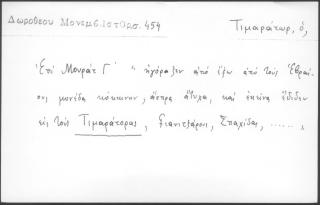 Δωροθέου Μονεμβ. Ιστορ. 454
Τιμαράτωρ, ὁ,
Ἐπί Μουράτ Γ΄ " ἀγόραζεν ἀπό ἔξω ἀπό τούς Ἑβραί-
ους μονέδα κόκκινην, ἄσπρα ἄτυχα, καί ἐκεῖνα ἔδιδεν
εἰς τούς Τιμαράτορας, Γιανιτζάρους, Σπαχίδας, ......,